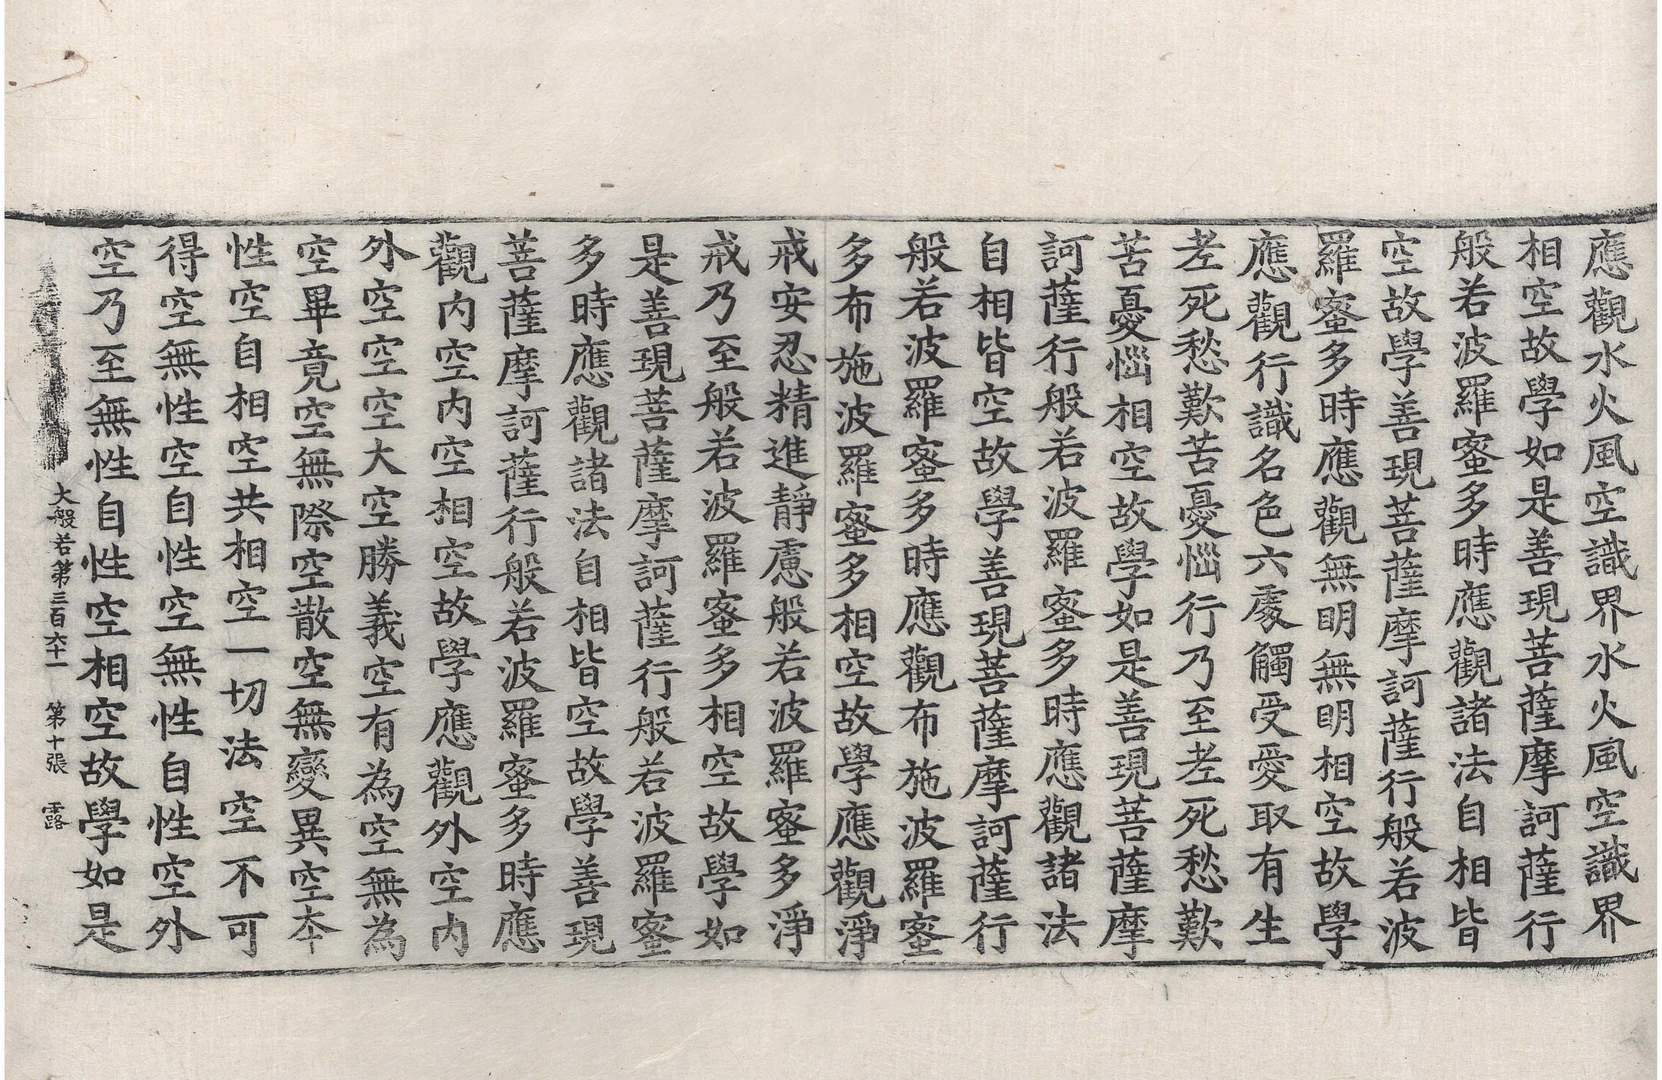 應觀水火風空識界水火風空識界
相空故學如是善現菩薩摩訶薩行
般若波羅蜜多時應觀諸法自相皆
空故學善現菩薩摩訶薩行般若波
羅蜜多時應觀無明無明相空故學
應觀行識名色六處觸受愛取有生
老死愁歎苦憂惱行乃至老死愁歎
苦憂惱相空故學如是善現菩薩摩
訶薩行般若波羅蜜多時應觀諸法
自相皆空故學善現菩薩摩訶薩行
般若波羅蜜多時應觀布施波羅蜜
多布施波羅蜜多相空故學應觀淨
戒安忍精進靜慮般若波羅蜜多淨
戒乃至般若波羅蜜多相空故學如
是善現菩薩摩訶薩行般若波羅蜜
多時應觀諸法自相皆空故學善現
菩薩摩訶薩行般若波羅蜜多時應
觀內空內空相空故學應觀外空內
外空空空大空勝義空有為空無為
空畢竟空無際空散空無變異空本
性空自相空共相空一切法空不可
得空無性空自性空無性自性空外
空乃至無性自性空相空故學如是
大般若第三百六十一　第十張　露